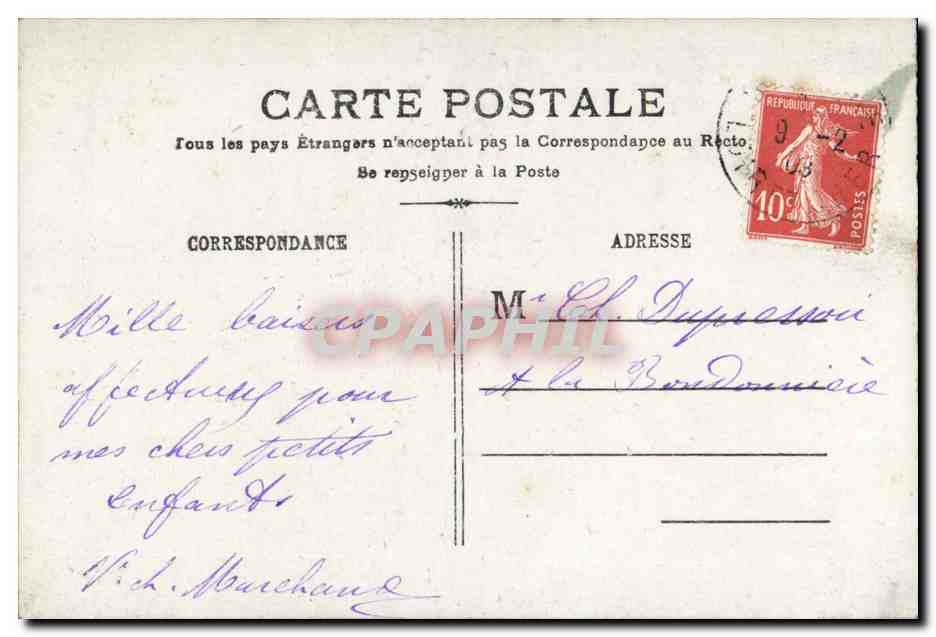 CARTE POSTALE
Tous les pays Étrangers n'acceptent pas la Correspondance au Recto
Se renseigner à la Poste
REPUBLIQUE FRANÇAISE
9 -2
08
10c
POSTES
CORRESPONDANCE
ADRESSE
Mille baisers
affectueux pour
mes chers petits
enfants
Ve ch. Marchand
Mr Ch. Dupresson
A la Bondonnière
CPAPHIL